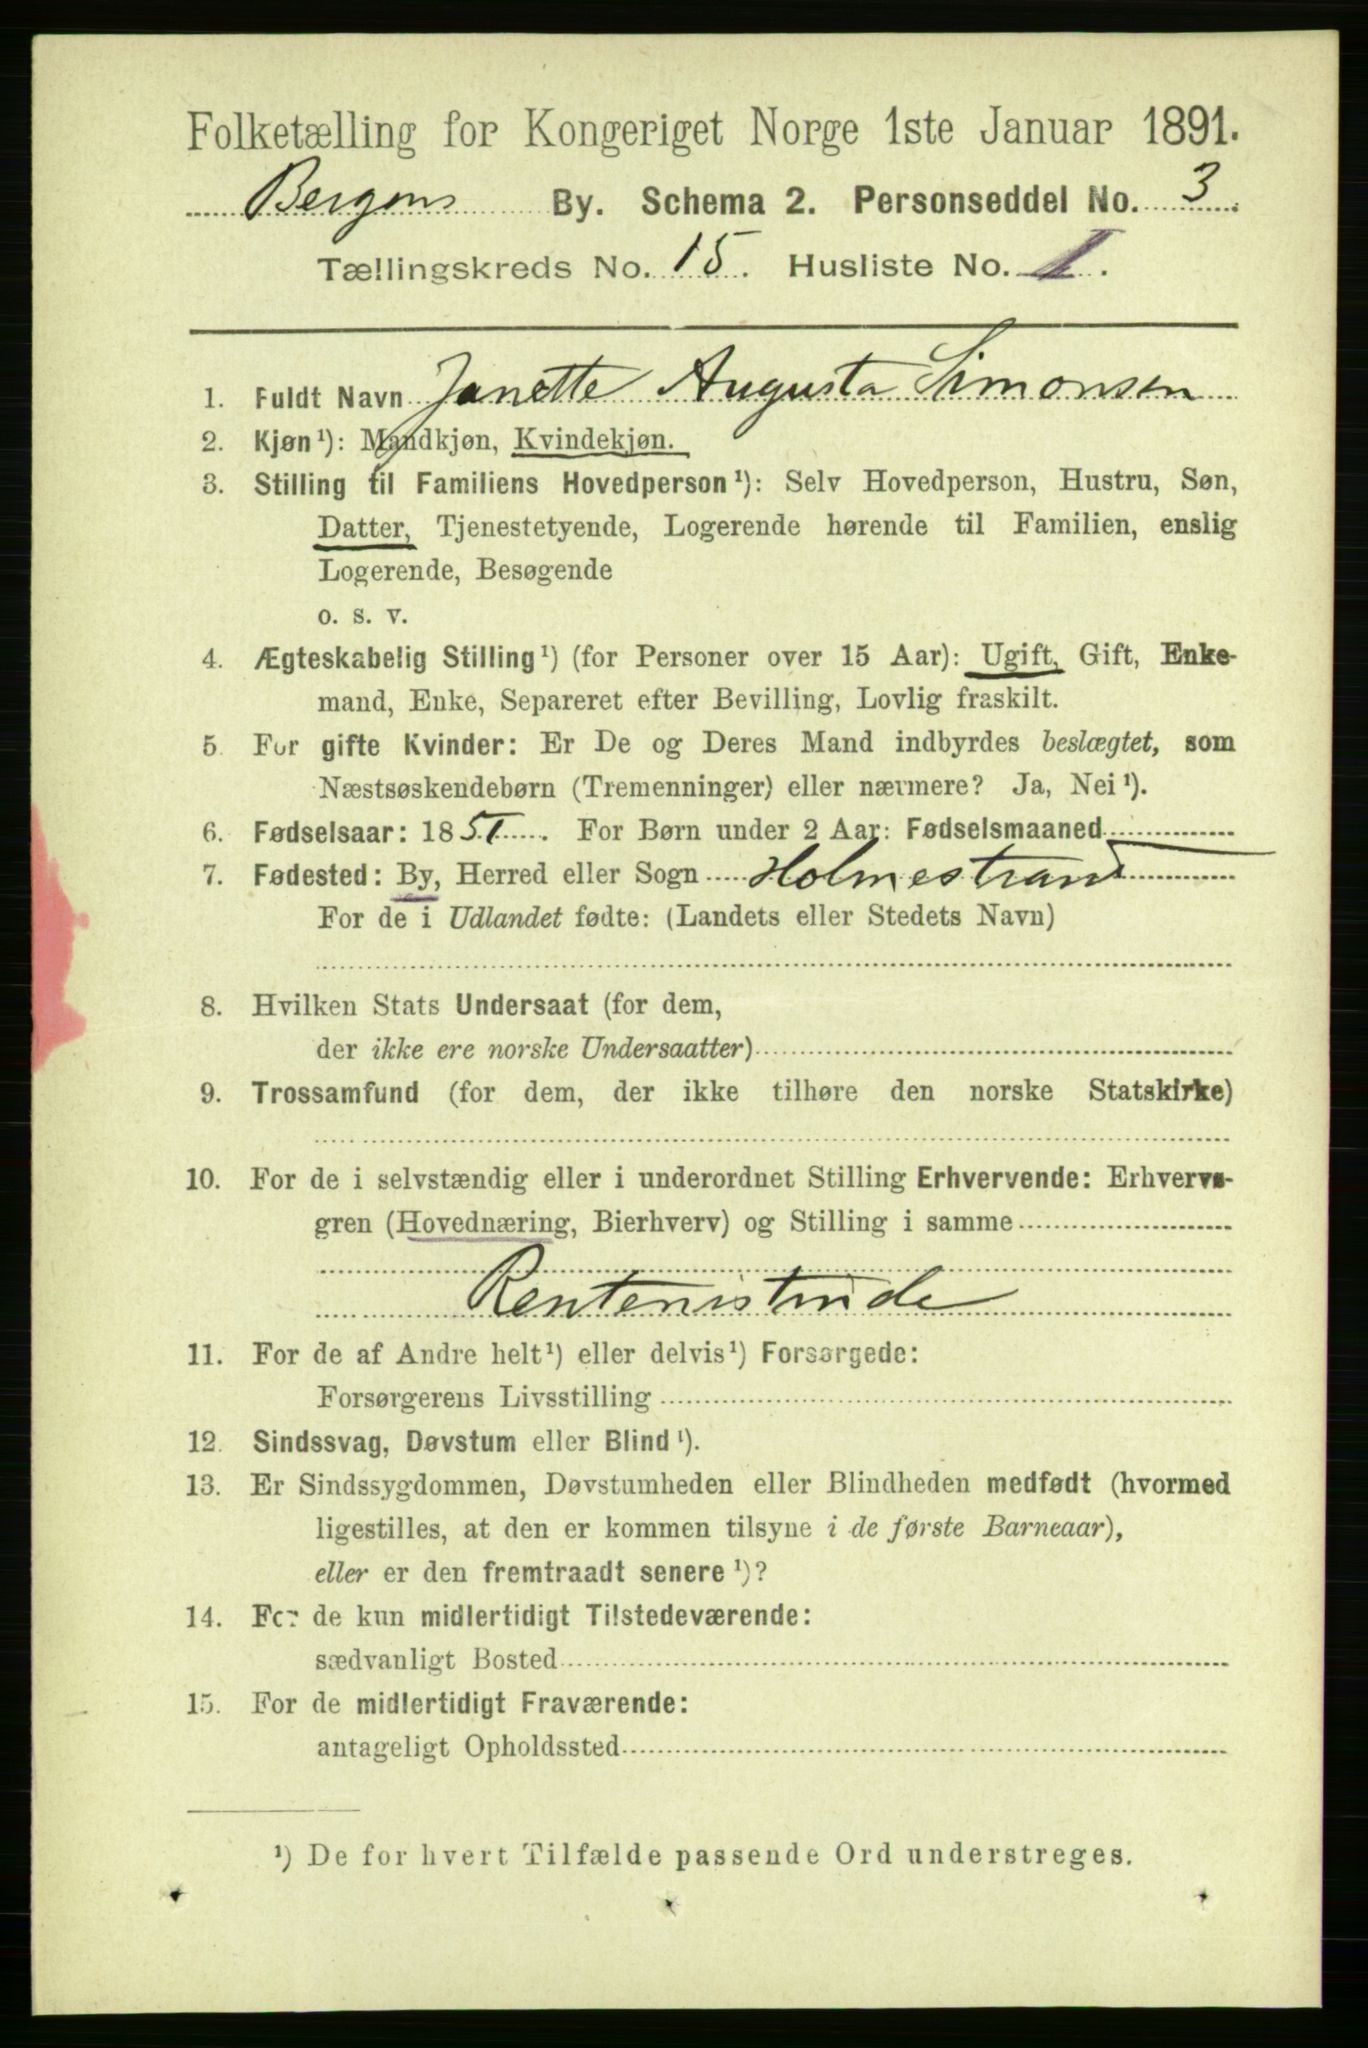 Folketælling for Kongeriget Norge 1ste Januar 1891.
Bergens By. Schema 2. Personseddel No. 3.
Tællingskreds No. 15. Husliste No. 1.
1. Fuldt Navn Janette Augusta Simonsen
2. Kjøn¹): Mandkjøn, Kvindekjøn.
3. Stilling til Familiens Hovedperson¹): Selv Hovedperson, Hustru, Søn,
Datter, Tjenestetyende, Logerende hørende til Familien, enslig
Logerende, Besøgende
o. s. v.
4. Ægteskabelig Stilling¹) (for Personer over 15 Aar): Ugift, Gift, Enke-
mand, Enke, Separeret efter Bevilling, Lovlig fraskilt.
5. For gifte Kvinder: Er De og Deres Mand indbyrdes beslægtet, som
Næstsøskendebørn (Tremenninger) eller nærmere? Ja, Nei¹).
6. Fødselsaar: 1851. For Børn under 2 Aar: Fødselsmaaned
7. Fødested: By, Herred eller Sogn Holmestrand
For de i Udlandet fødte: (Landets eller Stedets Navn)
8. Hvilken Stats Undersaat (for dem,
der ikke ere norske Undersaatter)
9. Trossamfund (for dem, der ikke tilhøre den norske Statskirke)
10. For de i selvstændig eller i underordnet Stilling Erhvervende: Erhvervs-
gren (Hovednæring, Bierhverv) og Stilling i samme
Rentenistinde
11. For de af Andre helt¹) eller delvis¹) Forsørgede:
Forsørgerens Livsstilling
12. Sindssvag, Døvstum eller Blind¹).
13. Er Sindssygdommen, Døvstumheden eller Blindheden medfødt (hvormed
ligestilles, at den er kommen tilsyne i de første Barneaar),
eller er den fremtraadt senere¹)?
14. For de kun midlertidigt Tilstedeværende:
sædvanligt Bosted
15. For de midlertidigt Fraværende:
antageligt Opholdssted
¹) De for hvert Tilfælde passende Ord understreges.